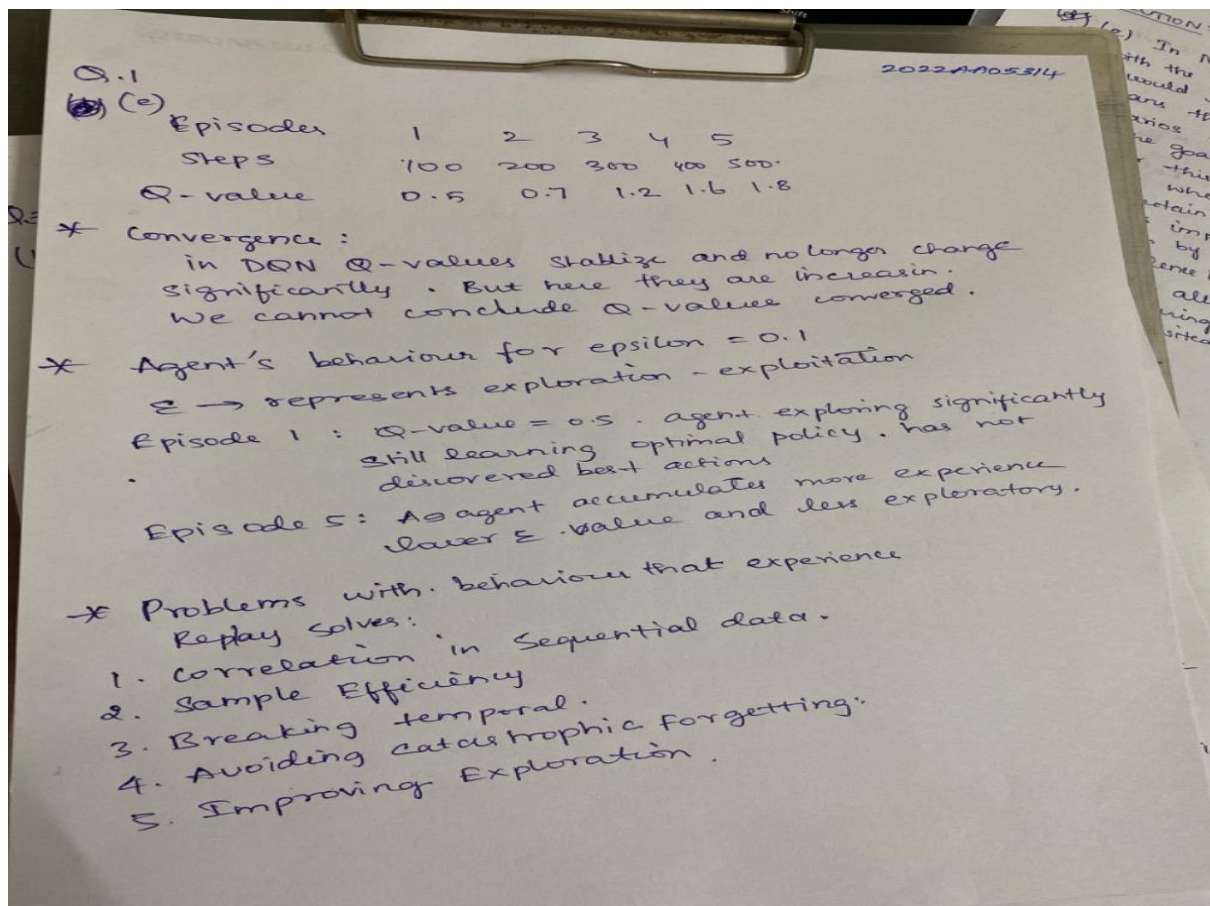 Shift
2022AA05314
Q.1
(e)
Episodes 1 2 3 4 5
Steps 100 200 300 400 500.
Q-value 0.5 0.7 1.2 1.6 1.8
* Convergence :
in DQN Q-values stablize and no longer change
significantly . But here they are increasin.
We cannot conclude Q-values converged.
* Agent's behaviour for epsilon = 0.1
ε → represents exploration - exploitation
Episode 1 : Q-value = 0.5 . agent exploring significantly
still learning optimal policy . has not
discovered best actions
Episode 5 : As agent accumulates more experience
lower ε .value and less exploratory.
* Problems with. behaviour that experience
Replay solves:
1. Correlation in Sequential data.
2. Sample Efficiency
3. Breaking temporal.
4. Avoiding catastrophic forgetting.
5. Improving Exploration .
UTION
(e) In
with the
would
the goa
this
by
all